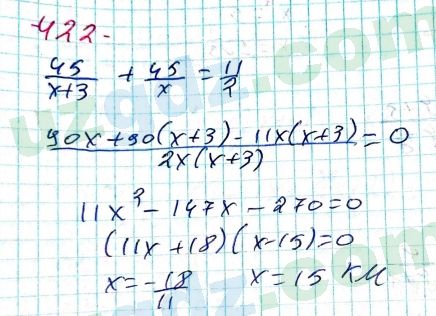 422-
45/(x+3) + 45/x = 11/2
(90x+90(x+3)-11x(x+3))/(2x(x+3)) = 0
11x² - 147x - 270 = 0
(11x+18)(x-15)=0
x = -18/11   x = 15 км